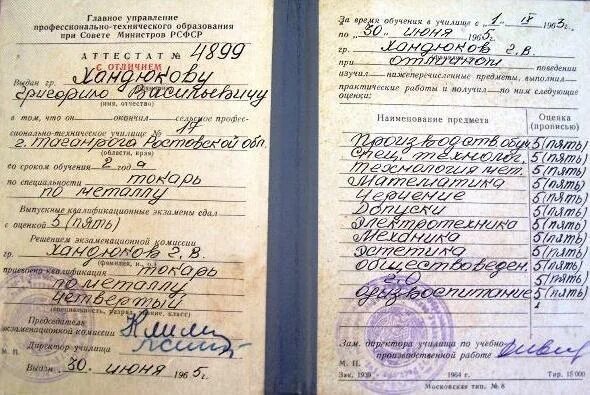 Главное управление
профессионально-технического образования
при Совете Министров РСФСР
АТТЕСТАТ № 4899
С ОТЛИЧИЕМ
Выдан гр. Хандюкову
Григорию Васильевичу
(имя, отчество)
в том, что он окончил сельское профес-
сионально-техническое училище № 17
г. Таганрога Ростовской обл.
(области, края)
со сроком обучения 2 года
по специальности токарь
по металлу
Выпускные квалификационные экзамены сдал
с оценкой 5 (пять)
Решением экзаменационной комиссии
гр. Хандюков Г.В.
(фамилия, и., о.)
присвоена квалификация токарь
по металлу
четвертый
(специальность, разряд, звание, класс)
Председатель
экзаменационной комиссии
Директор училища
М. П.
Выдан 30 июня 1965 г.
За время обучения в училище с 1 IX 1963 г.
по 30 июня 1965 г.
гр. Хандюков Г.В.
при отличном поведении
изучил нижеперечисленные предметы, выполнил
практические работы и получил по ним следующие
оценки:
Наименование предмета Оценка (прописью)
Производств обуч. 5 (пять)
Спец. технолог. 5 (пять)
Технология мет. 5 (пять)
Математика 5 (пять)
Черчение 5 (пять)
Допуски 5 (пять)
Электротехника 5 (пять)
Механика 5 (пять)
Эстетика 5 (пять)
Обществоведен. 5 (пять)
ГО 5 (пять)
Физвоспитание 5 (пять)
Зам. директора училища по учебно-
производственной работе
М. П.
Зак. 1939 1964 г. Тир. 15 000
Московская тип. № 8